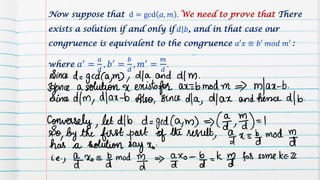 Now suppose that d = gcd(a, m). We need to prove that There
exists a solution if and only if d|b, and in that case our
congruence is equivalent to the congruence a'x ≡ b' mod m' :
where a' = a/d, b' = b/d, m' = m/d.
Since d = gcd(a,m), d|a and d|m.
Since a solution x exists for ax≡b mod m ⇒ m|ax-b.
Since d|m, d|ax-b Also, since d|a, d|ax and hence d|b.
Conversely, let d|b. d = gcd(a,m) ⇒ (a/d, m/d) = 1
So, by the first part of the result, a/d x ≡ b/d mod m/d
has a solution say x₀.
i.e., a/d x₀ ≡ b/d mod m/d ⇒ ax₀/d - b/d = k m/d for some k∈ℤ